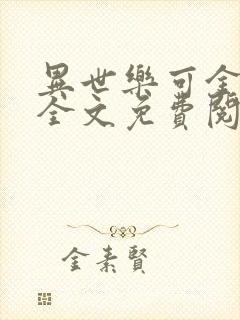 異世樂可全
全文免費閱
金素賢